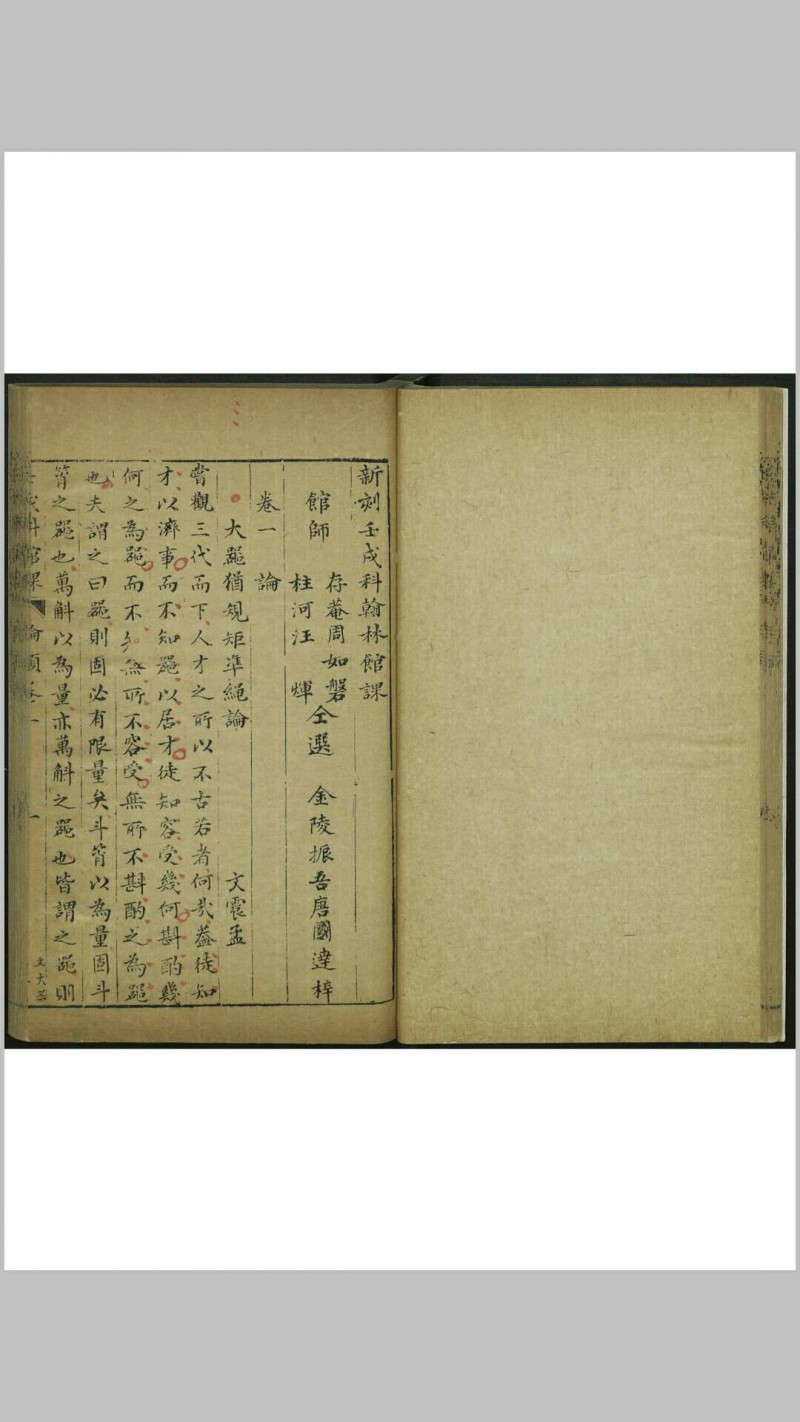 新刻壬戌科翰林館課
館師 存菴周如磐 柱河汪 煇 仝選 金陵振吾唐國達梓
卷一 論
大噐猶規矩準繩論 文震孟
嘗觀三代而下人才之所以不古若者何㢤葢徒知
才以濟事而不知噐以居才徒知容受幾何斟酌幾
何之為噐而不知無所不容受無所不斟酌之為噐
也夫謂之曰噐則固必有限量矣斗筲以為量固斗
筲之噐也萬斛以為量亦萬斛之噐也皆謂之噐則
壬戌科館課 論類卷一 一